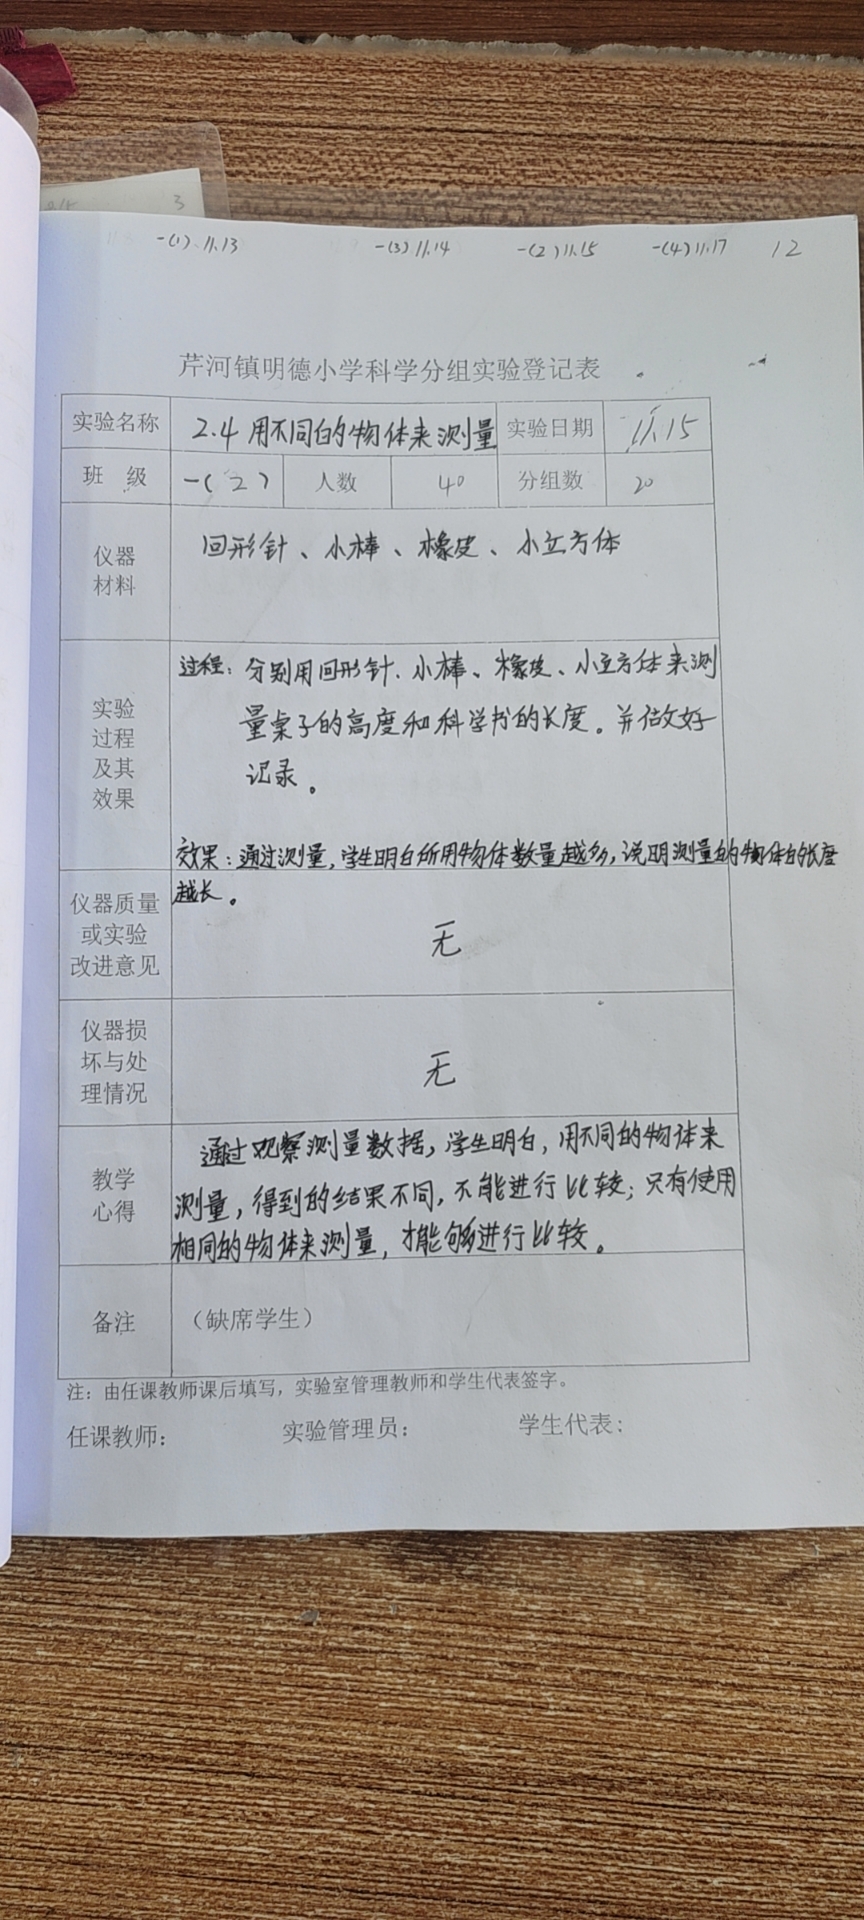 一(1) 11.13 一(3) 11.14 一(2) 11.15 一(4) 11.17 12
芹河镇明德小学科学分组实验登记表
实验名称 2.4 用不同的物体来测量 实验日期 11.15
班 级 一(2) 人数 40 分组数 20
仪器
材料
回形针、小棒、橡皮、小立方体
实验
过程
及其
效果
过程: 分别用回形针、小棒、橡皮、小立方体来测
量桌子的高度和科学书的长度。并做好
记录。
效果: 通过测量,学生明白所用物体数量越多,说明测量的物体的长度
越长。
仪器质量
或实验
改进意见
无
仪器损
坏与处
理情况
无
教学
心得
通过观察测量数据,学生明白,用不同的物体来
测量,得到的结果不同,不能进行比较;只有使用
相同的物体来测量,才能够进行比较。
备注 (缺席学生)
注:由任课教师课后填写,实验室管理教师和学生代表签字。
任课教师: 实验管理员: 学生代表: